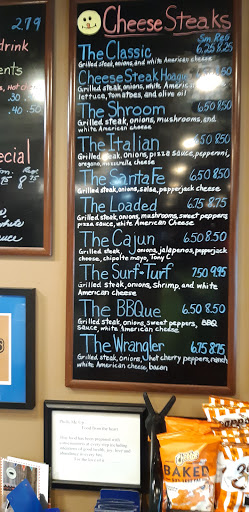 279
drink
ents
.30 .35
.40 .50
ecial
Cheese Steaks
Sm Reg
The Classic 6.25 8.25
Grilled steak, onions, and white American cheese
Cheese Steak Hoagie
Grilled steak, onions, white American
lettuce, tomatoes, and olive oil
The Shroom 6.50 8.50
Grilled steak, onions, mushrooms, and
white American cheese
The Italian 6.50 8.50
Grilled steak, onions, pizza sauce, pepperoni,
oregano, mozzarella cheese
The Santa Fe 6.50 8.50
Grilled steak, onions, salsa, pepperjack cheese
The Loaded 6.75 8.75
Grilled steak, onions, mushrooms, sweet peppers,
pizza sauce, white American Cheese
The Cajun 6.50 8.50
Grilled steak, onions, jalapenos, pepperjack
cheese, chipotle mayo, Tony C
The Surf-Turf 7.50 9.95
Grilled steak, onions, shrimp, and white
American cheese
The BBQue 6.50 8.50
Grilled steak, onions, sweet peppers, BBQ
sauce, white American cheese
The Wrangler 6.75 8.75
Grilled steak, onions, hot cherry peppers, ranch
white American cheese, bacon
Food from the heart
BAKED